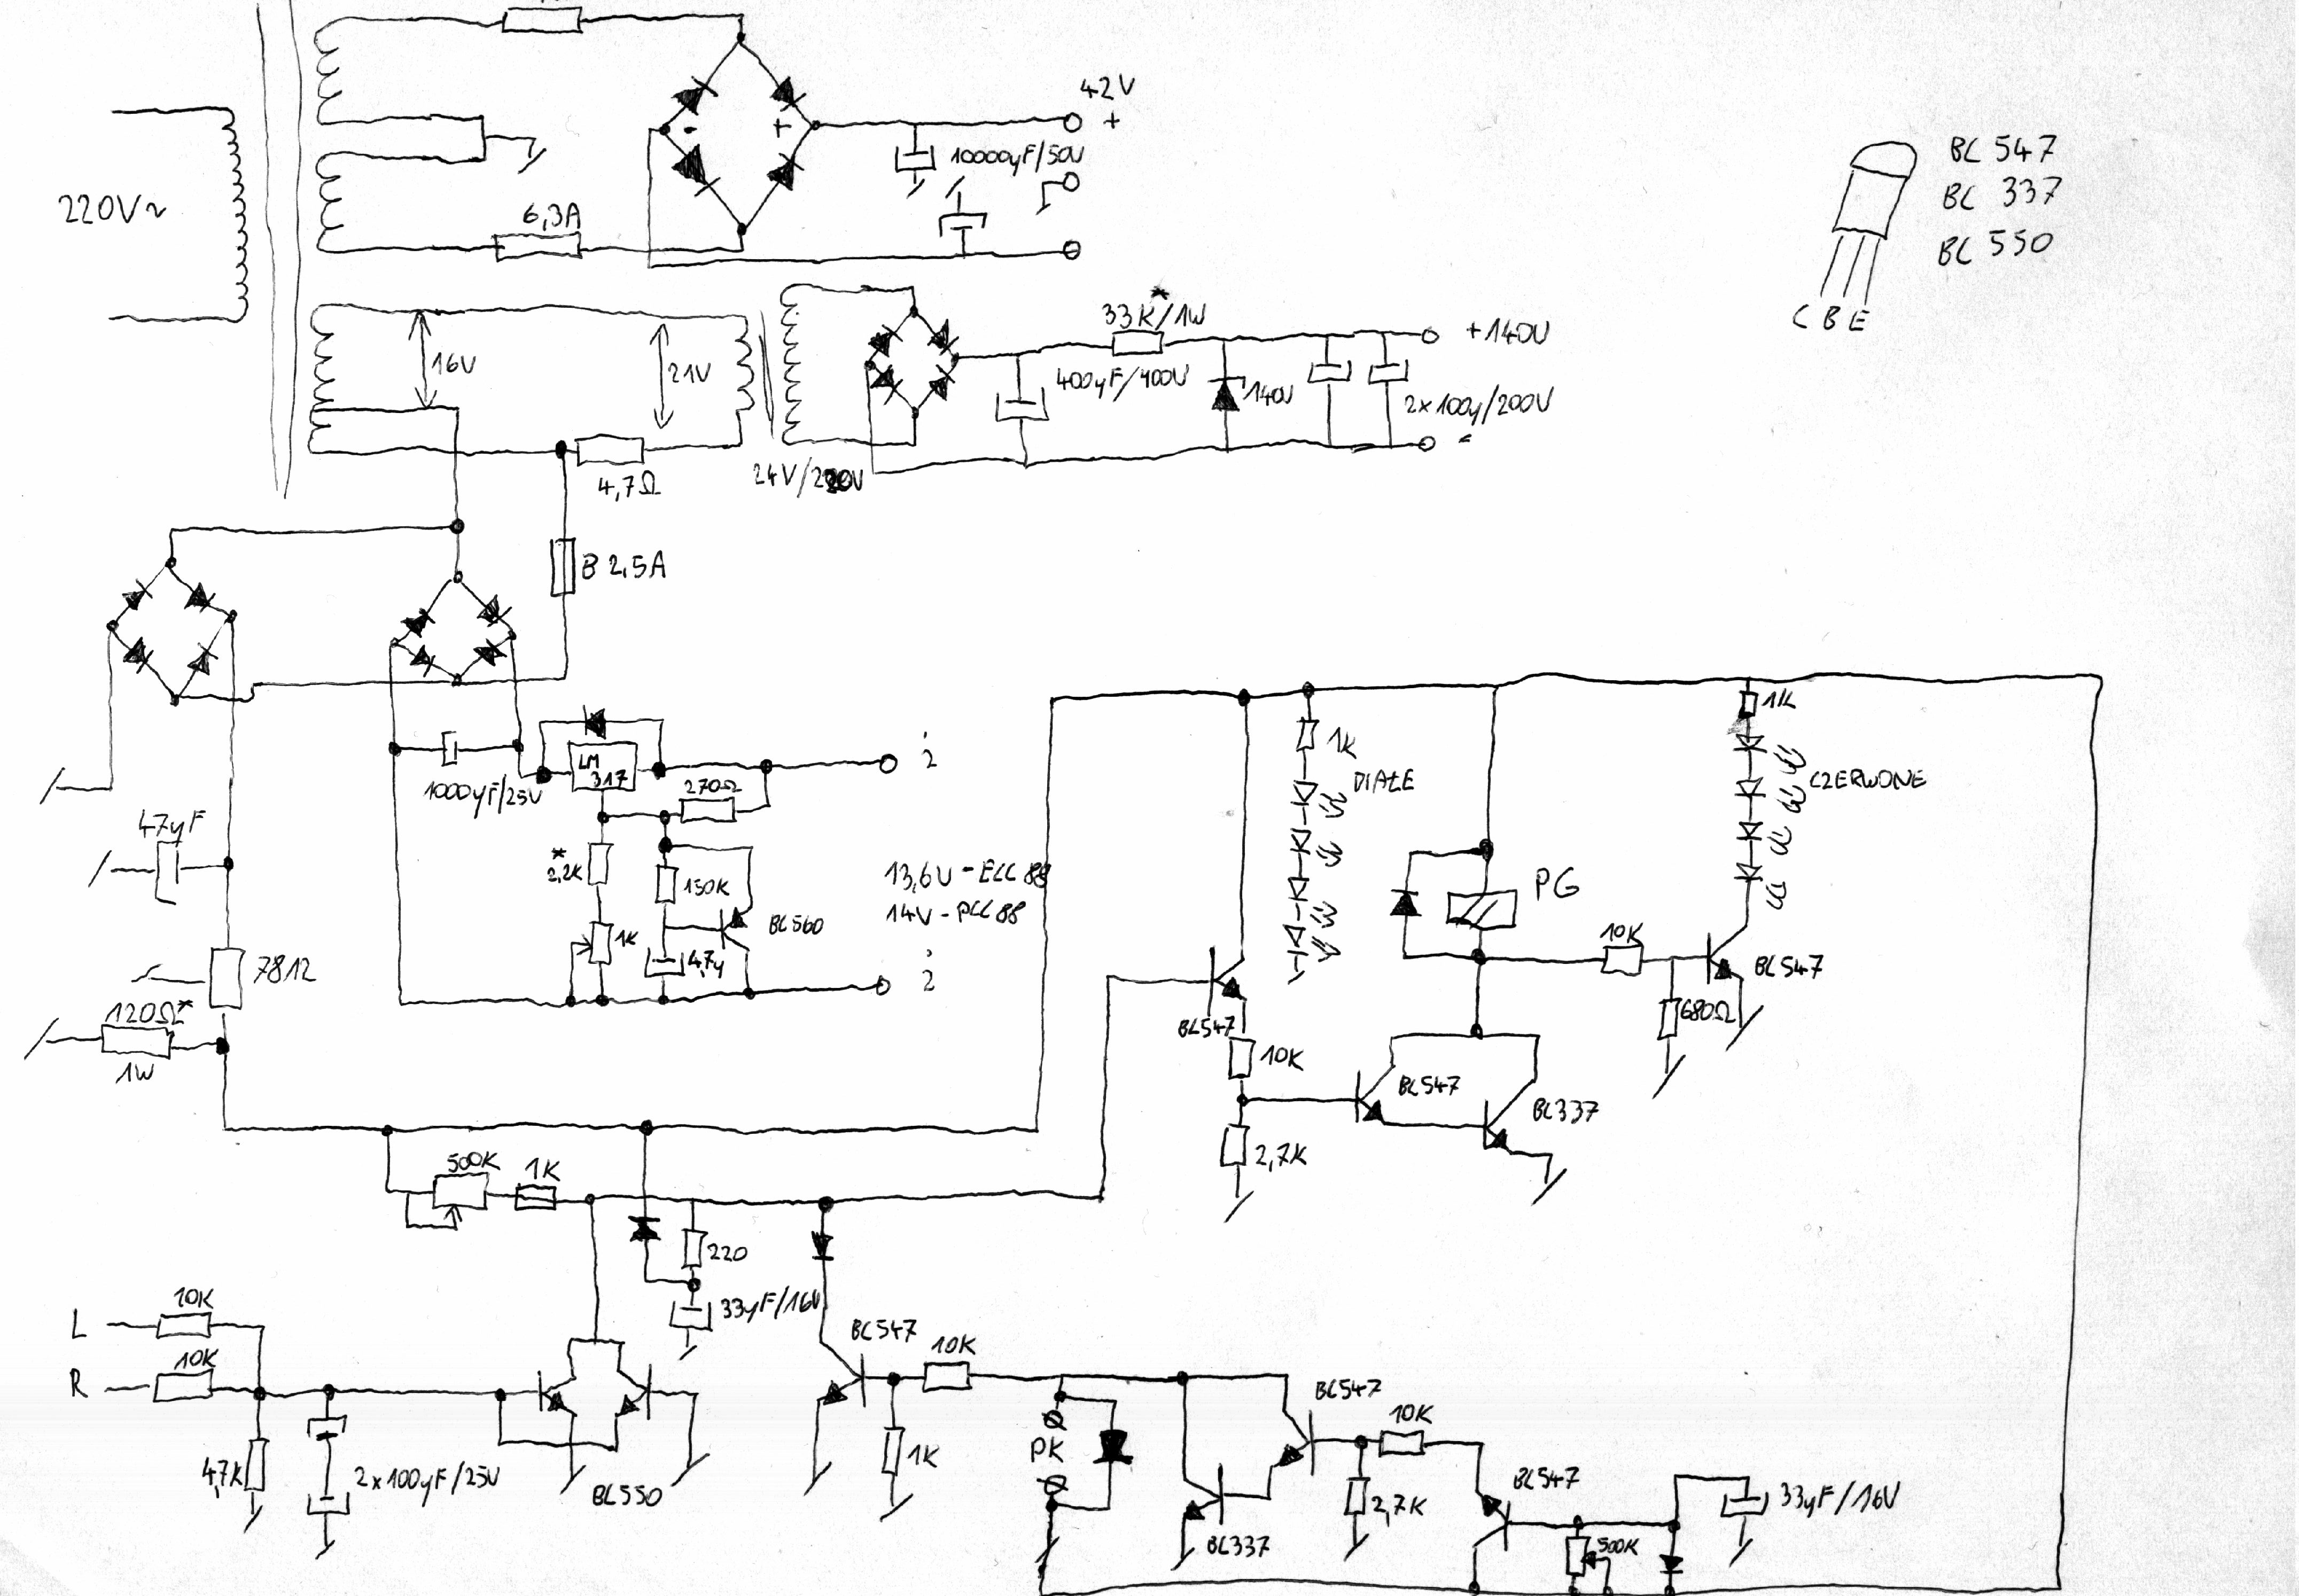 42V
+
10000µF/50V
220V~
6,3A
- +
BC 547
BC 337
BC 550
C B E
16V
21V
*
33K/1W
+140V
400µF/400V
140V
2x100µ/200V
-
4,7Ω
24V/220V
B 2,5A
1000µF/25V
LM
317
270Ω
ż
47µF
*
2,2K
150K
BC560
1K
4,7µ
13,6V - ECC 88
14V - PCC 88
ż
7812
120Ω*
1W
1K
BIAŁE
1K
CZERWONE
PG
10K
BC547
680Ω
BC547
10K
BC547
BC337
2,7K
500K
1K
220
33µF/16V
L
10K
R
10K
4,7K
2x100µF/25V
BC550
BC547
10K
1K
PK
BC337
BC547
10K
2,7K
BC547
500K
33µF/16V